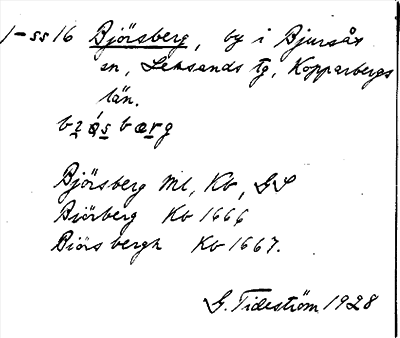 1-ss 16 Björsberg, by i Bjursås
sn, Leksands tg, Kopparbergs
län.
Björsberg ml, Kb, GS
Biörberg Kb 1666
Biörsbergh Kb 1667.
G. Tideström 1928